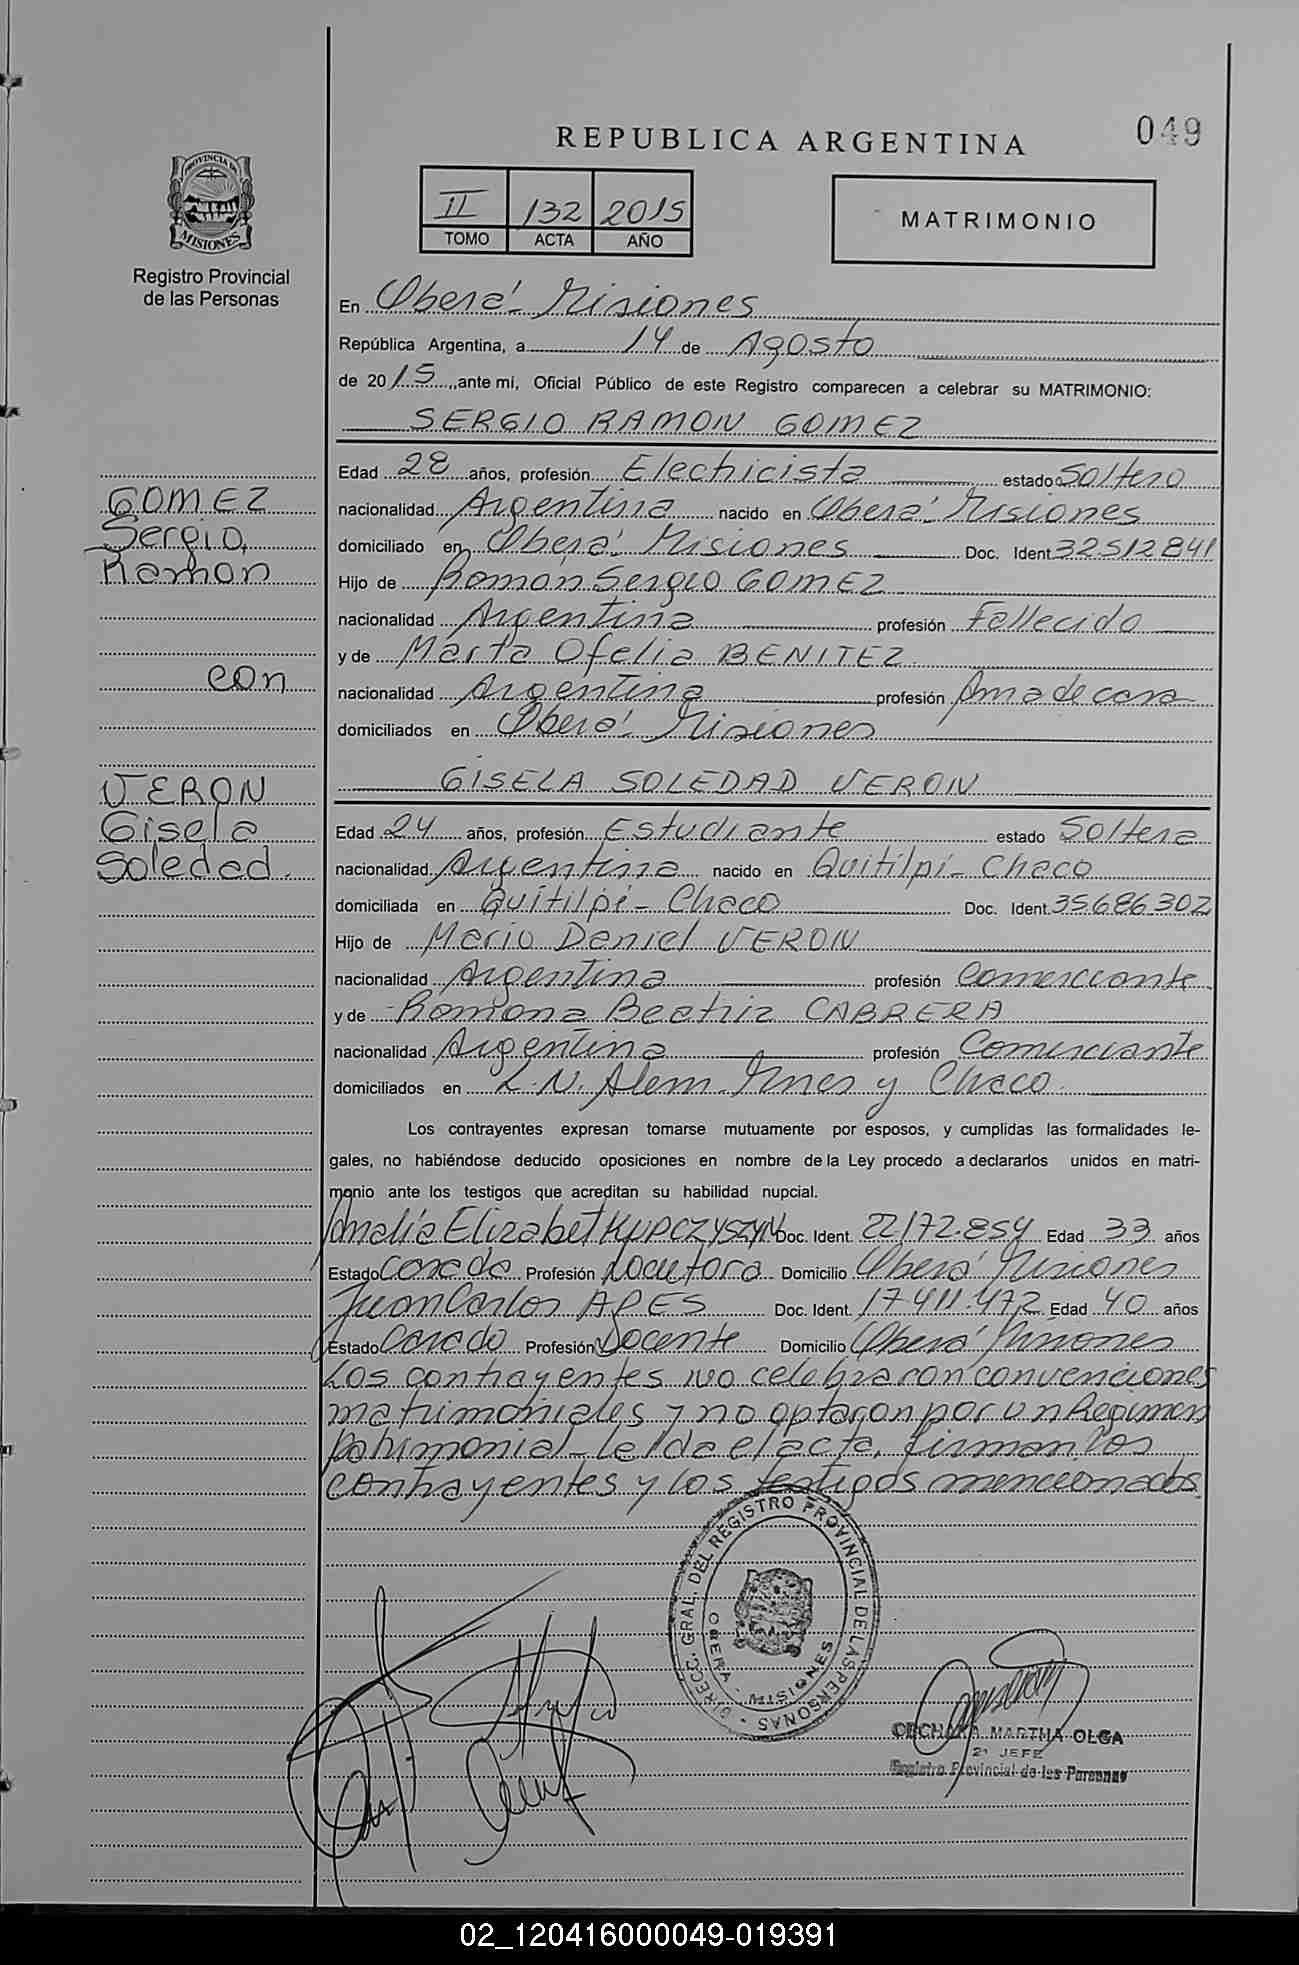 049
REPUBLICA ARGENTINA
II 132 2015
TOMO ACTA AÑO
MATRIMONIO
PROVINCIA DE
MISIONES
Registro Provincial
de las Personas
En Oberá - Misiones
República Argentina, a 14 de Agosto
de 2015, ante mí, Oficial Público de este Registro comparecen a celebrar su MATRIMONIO:
SERGIO RAMON GOMEZ
Edad 28 años, profesión Electricista estado Soltero
nacionalidad Argentina nacido en Oberá - Misiones
domiciliado en Oberá - Misiones Doc. Ident. 32512841
Hijo de Ramón Sergio GOMEZ
nacionalidad Argentina profesión Fallecido
y de Marta Ofelia BENITEZ
nacionalidad Argentina profesión Ama de casa
domiciliados en Oberá - Misiones
GOMEZ
Sergio
Ramon
con
VERON
Gisela
Soledad.
GISELA SOLEDAD VERON
Edad 24 años, profesión Estudiante estado Soltera
nacionalidad Argentina nacido en Quitilpi - Chaco
domiciliada en Quitilpi - Chaco Doc. Ident. 35.686.302
Hijo de Mario Daniel VERON
nacionalidad Argentina profesión Comerciante
y de Ramona Beatriz CABRERA
nacionalidad Argentina profesión Comerciante
domiciliados en L.N. Alem - Mnes y Chaco.
Los contrayentes expresan tomarse mutuamente por esposos, y cumplidas las formalidades le-
gales, no habiéndose deducido oposiciones en nombre de la Ley procedo a declararlos unidos en matri-
monio ante los testigos que acreditan su habilidad nupcial.
Amalia Elizabet KUPCZYSZYN Doc. Ident. 22172.854 Edad 33 años
Estado Casada Profesión Locutora Domicilio Oberá - Misiones
Juan Carlos APES Doc. Ident. 17.411.472 Edad 40 años
Estado Casado Profesión Docente Domicilio Oberá - Misiones
Los contrayentes no celebraron convenciones
matrimoniales y no optaron por un Regimen
patrimonial - leída el acta, firman los
contrayentes y los testigos mencionados
DIRECC. GRAL. DEL REGISTRO PROVINCIAL DE LAS PERSONAS
OBERA - MISIONES
MARTHA OLGA
2º JEFE
Registro Provincial de las Personas
02_120416000049-019391